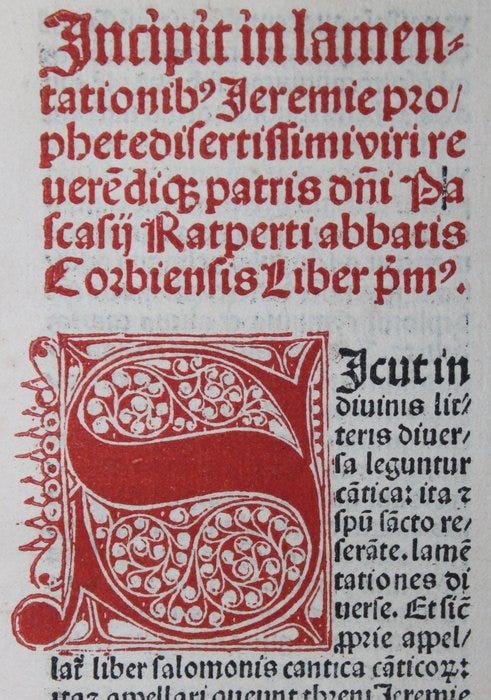 Incipit in lamen⸗
tationibꝰ Jeremie pro/
phete disertissimi viri re
uerēdiqꝫ patris dn̄i Pa
scasij Ratperti abbatis
Corbiensis Liber pͥmꝰ.
SIcut in
diuinis lit/
teris diuer/
sa leguntur
cātica: ita ⁊
spū sācto re/
serāte. lamē
tationes di
uerse. Et sic̄
ꝓprie appel/
lat᷑ liber salomonis cantica cāticoꝝ:
itaꝫ appellari queunt threni Jeremie